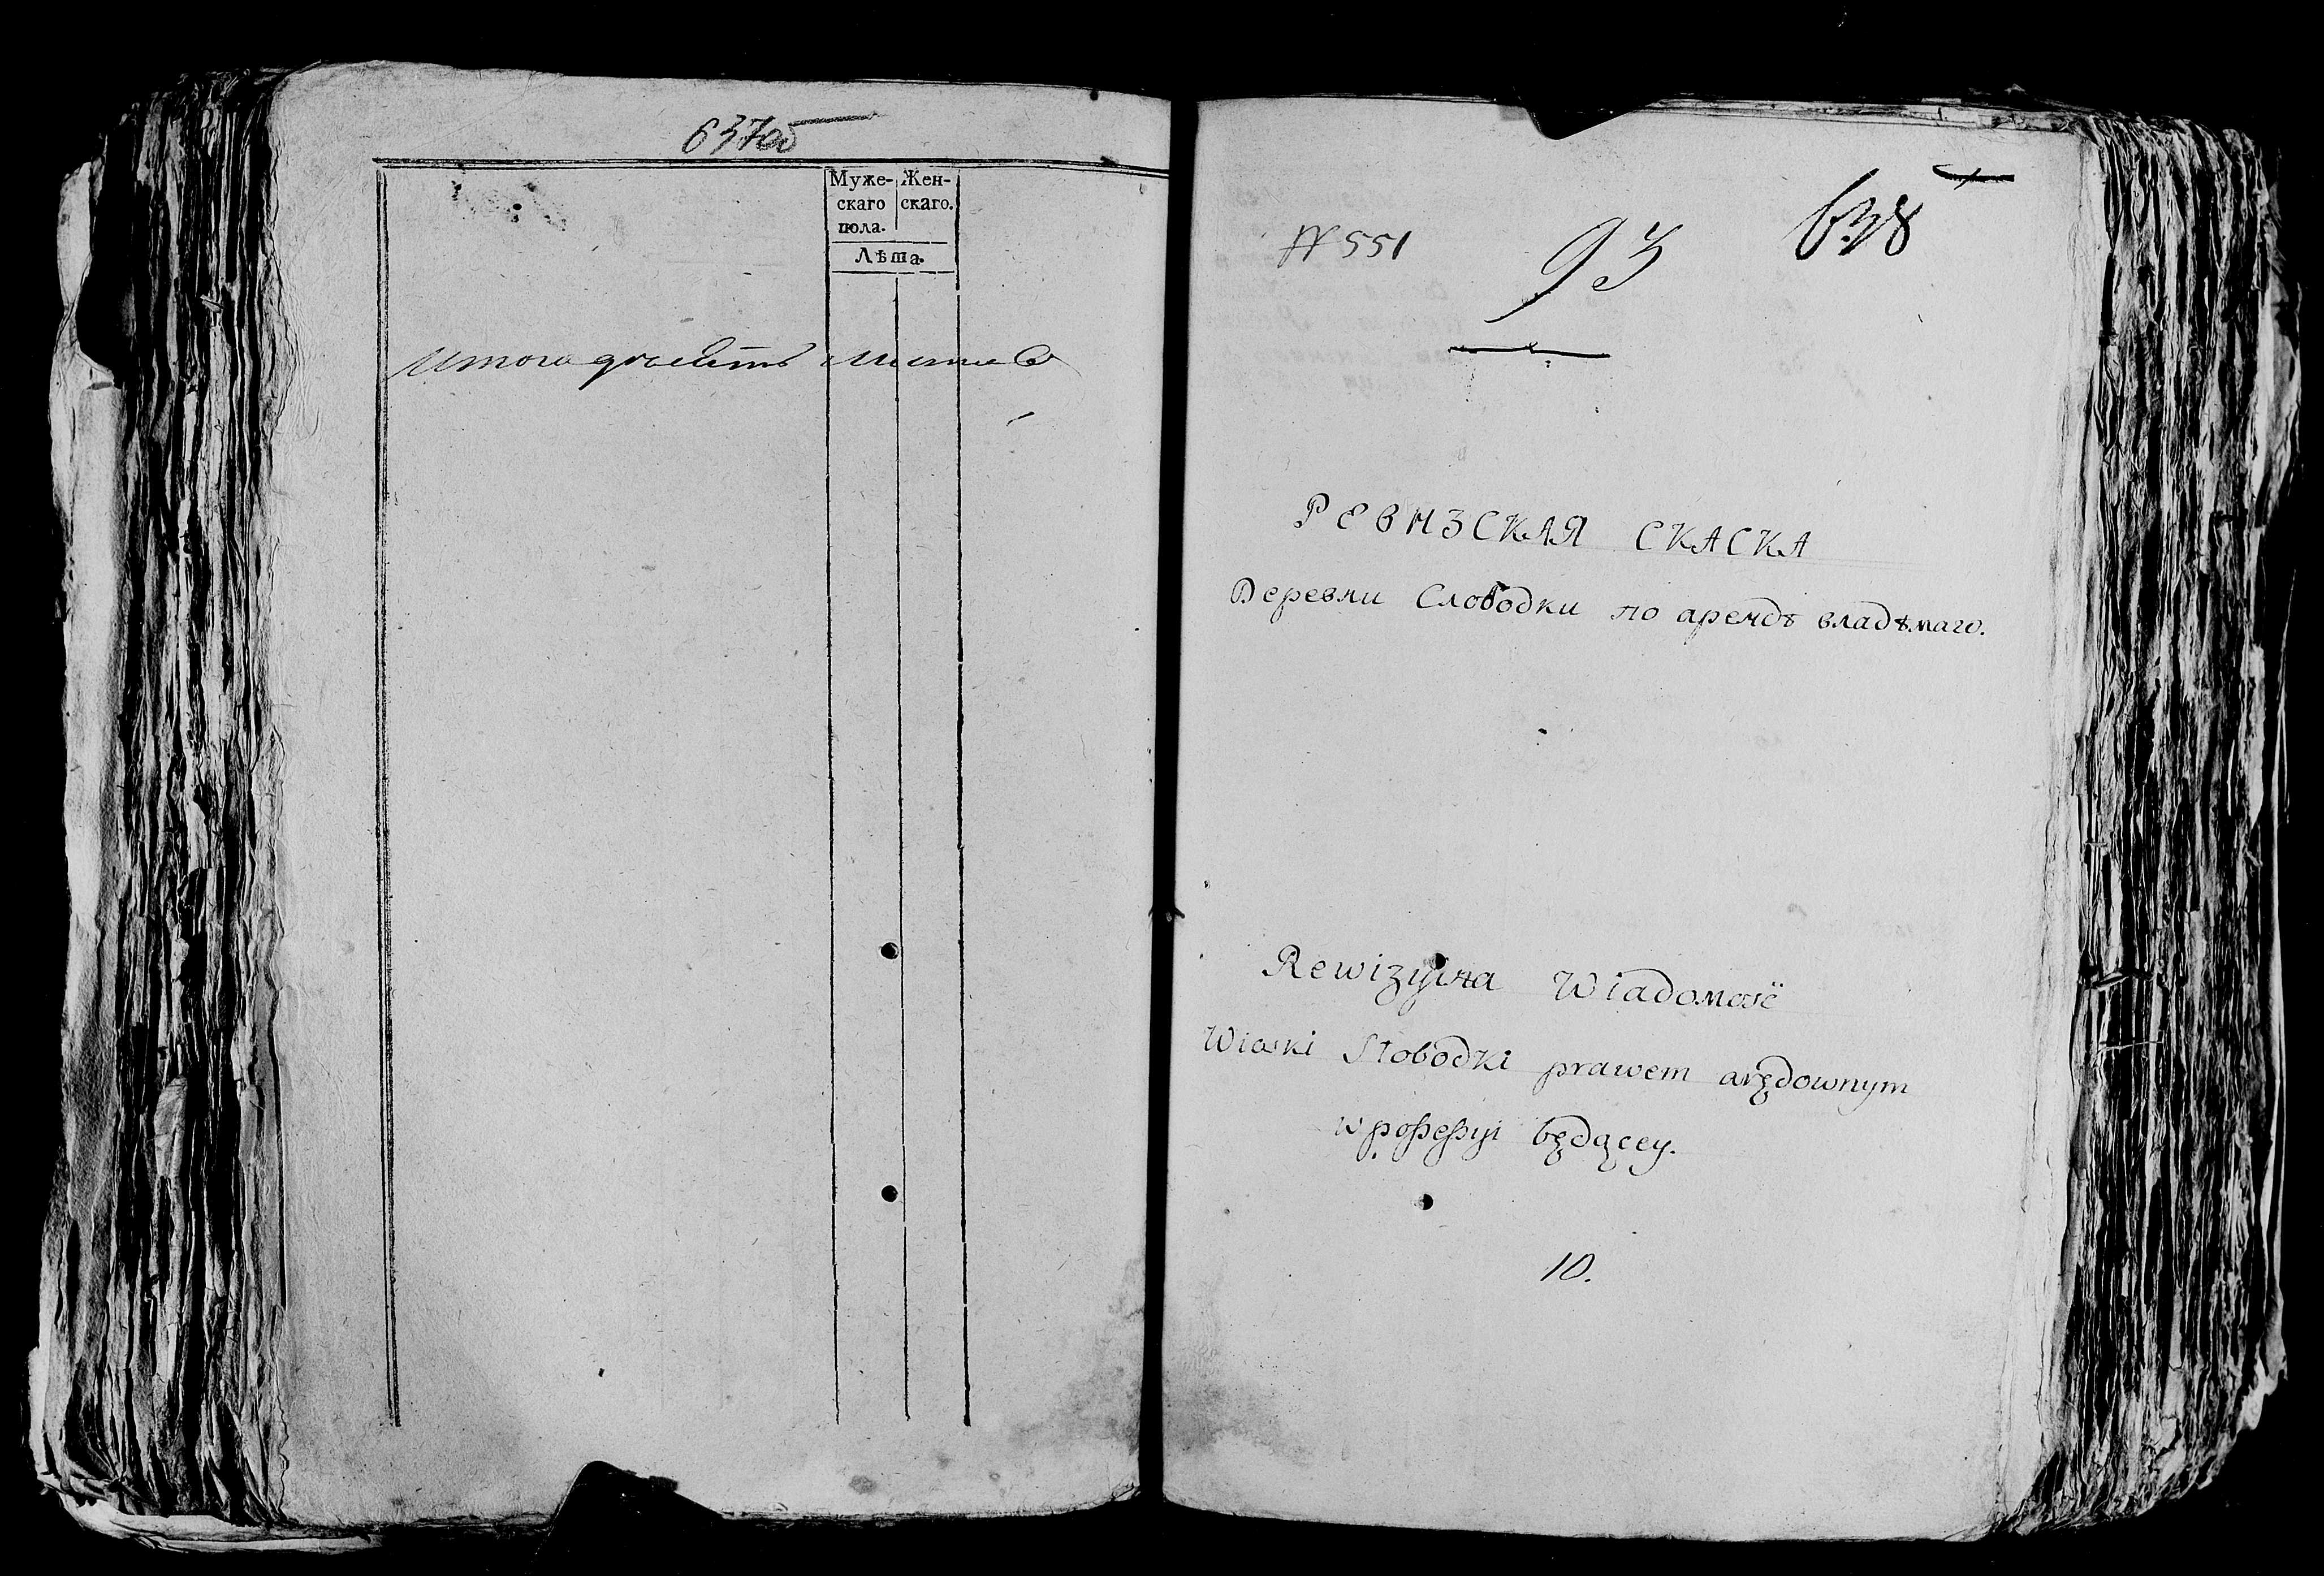 637об
Муже- Жен-
скаго скаго.
пола.
Лѣта.
Итого десеть листов
638
N 551
93
РЕВИЗСКАЯ СКАСКА
Деревни Слободки по арендѣ владѣмаго.
Rewizyina Wiadomość
Wioski Słobodki prawem arędownym
w possessyi będącey.
10.